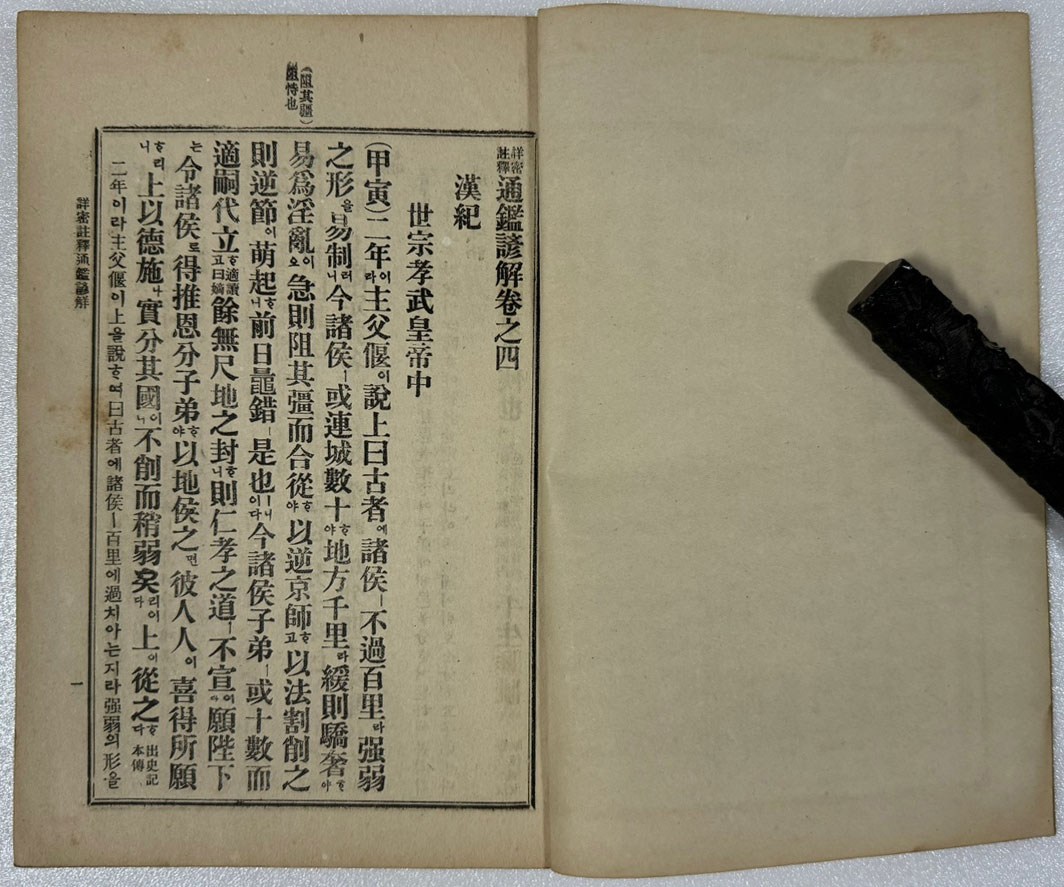 (阻其疆)
阻恃也
詳密註釋通鑑諺解卷之四
漢紀
世宗孝武皇帝中
(甲寅)二年이라主父偃이說上曰古者에諸侯ㅣ不過百里라强弱
之形을易制러니今諸侯ㅣ或連城數十ᄒᆞ야地方千里라緩則驕奢ᄒᆞ야
易爲淫亂이오急則阻其彊而合從ᄒᆞ야以逆京師ᄒᆞ고以法割削之
則逆節이萌起ᄒᆞ니前日鼂錯ㅣ是也ㅣ니이다今諸侯子弟ㅣ或十數而
適嗣代立ᄒᆞ고適讀曰嫡餘無尺地之封ᄒᆞ니則仁孝之道ㅣ不宣이라願陛下
는令諸侯로得推恩分子弟ᄒᆞ야以地侯之면彼人人이喜得所願
ᄒᆞ리니上以德施나實分其國이니不削而稍弱矣리이다上이從之ᄒᆞ다出史記本傳
二年이라主父偃이上을說ᄒᆞ여曰古者에諸侯ㅣ百里에過치아는지라强弱의形을
詳密註釋通鑑諺解
一